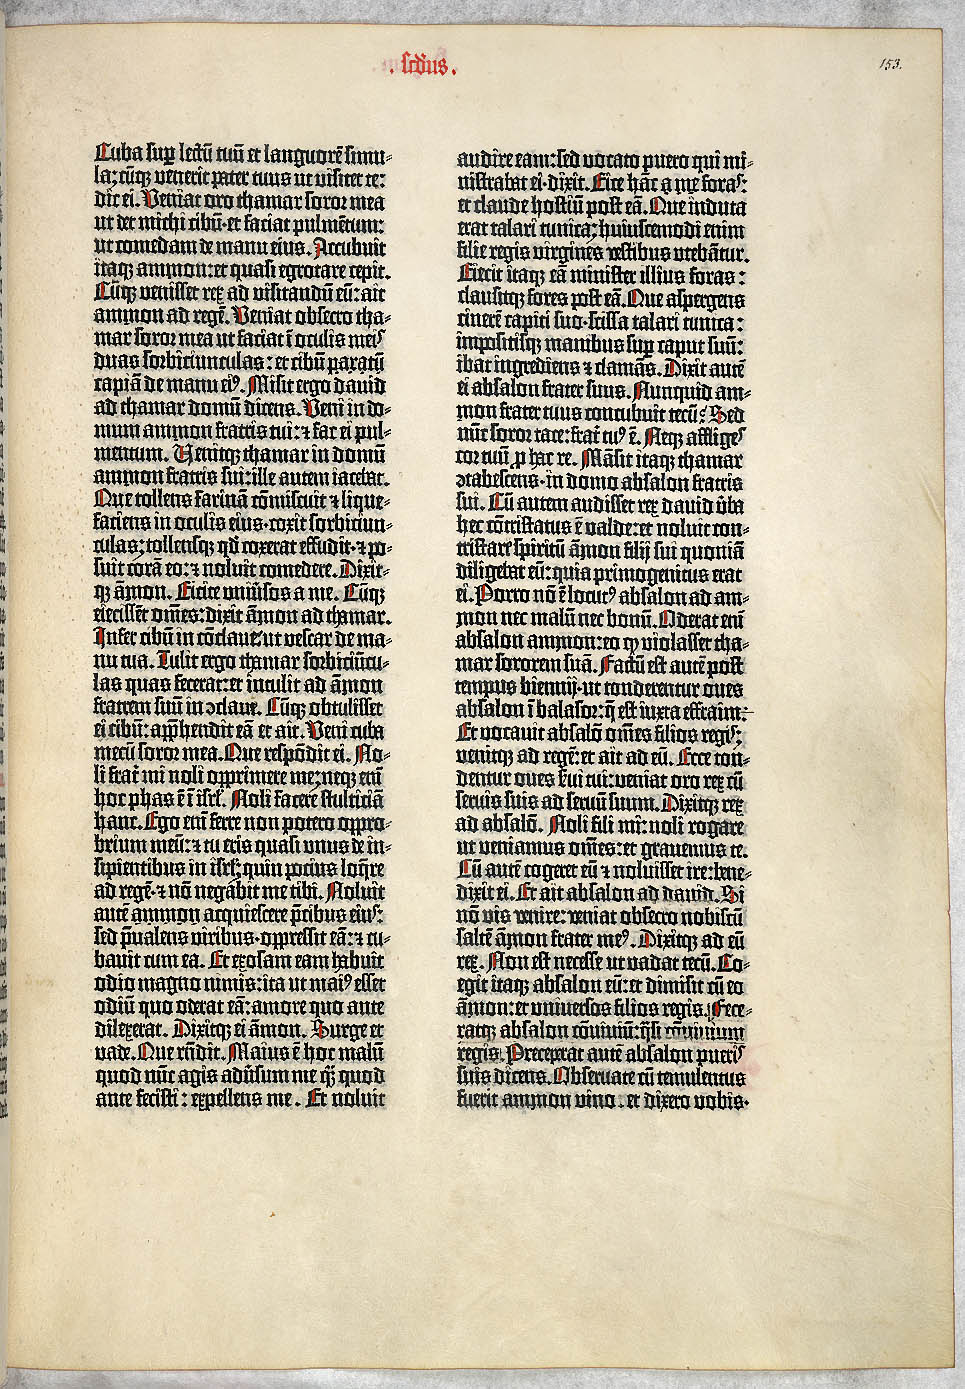 .scd̄us.
153.
Cuba sup̱ lectū tuū et languorē simu⸗
la; cūq̨ venerit pater tuus ut visitet te:
dic ei. Veniat oro thamar soror mea
ut det michi cibū· et faciat pulmētum:
ut comedam de manu eius. Accubuit
itaq̨ ammon: et quasi egrotare cepit.
Cūq̨ venisset rex ad visitandū eū: ait
ammon ad regē. Veniat obsecro tha⸗
mar soror mea ut faciat ī oculis meiꝰ
duas sorbiciunculas: et cibū paratū
capiā de manu eiꝰ. Misit ergo david
ad thamar domū dicens. Veni in do⸗
mum ammon fratris tui: ⁊ fac ei pul⸗
mentum. Venitq̨ thamar in domū
ammon fratris sui: ille autem iacebat.
Que tollens farinā cōmiscuit ⁊ lique⸗
faciens in oculis eius· coxit sorbiciun⸗
culas; tollensq̨ qd̄ coxerat effudit· ⁊ po⸗
suit corā eo: ⁊ noluit comedere. Dixit⸗
q̨ āmon. Eicite univ̄sos a me. Cūq̨
eiecissēt om̄es: dixit āmon ad thamar.
Infer cibū in cōclave· ut vescar de ma⸗
nu tua. Tulit ergo thamar sorbiciūcu⸗
las quas fecerat: et intulit ad āmon
fratrem suū in ↄclavi. Cūq̨ obtulisset
ei cibū: app̱hendit eā et ait. Veni cuba
mecū soror mea. Que respōdit ei. No⸗
li frat̄ mi noli opprimere me; neq̨ enī
hoc phas ē ī isrl̄. Noli facere stulticiā
hanc. Ego enī ferre non potero oppro⸗
brium meū: ⁊ tu eris quasi unus de in⸗
sipientibus in isrl̄; quin pocius loq̄re
ad regē· ⁊ nō negabit me tibi. Noluit
autē ammon acquiescere p̄cibus eiuꝰ:
sed p̄valens viribus· oppressit eā: ⁊ cu⸗
bavit cum ea. Et exosam eam habuit
odio magno nimis: ita ut maiꝰ esset
odiū quo oderat eā: amore quo ante
dilexerat. Dixitq̨ ei āmon. Surge et
vade. Que rn̄dit. Maius ē hoc malū
quod nūc agis adv̄sum me q̄ꝫ quod
ante fecisti: expellens me. Et noluit
audire eam: sed vocato puero qui mi⸗
nistrabat ei· dixit. Eice hāc a me foraꝰ:
et claude hostiū post eā. Que induta
erat talari tunica; huiuscemodi enim
filie regis virgines vestibus utebātur.
Eiecit itaq̨ eā minister illius foras:
clausitq̨ fores post eā. Que aspergens
cinerē capiti suo· scissa talari tunica:
impositisq̨ manibus sup̱ caput suū:
ibat ingrediens ⁊ clamās. Dixit autē
ei absalon frater suus. Nunquid am⸗
mon frater tuus concubuit tecū? Sed
nūc soror tace: frat̄ tuꝰ ē. Neq̨ affligeꝰ
cor tuū p̱ hac re. Māsit itaq̨ thamar
ↄtabescens· in domo absalon fratris
sui. Cū autem audisset rex david v̄ba
hec cōtristatus ē valde: et noluit con⸗
tristare spiritū āmon filij sui quoniā
diligebat eū: quia primogenitus erat
ei. Porro nō ē locutꝰ absalon ad am⸗
mon nec malū nec bonū. Oderat enī
absalon ammon: eo ꝙ violasset tha⸗
mar sororem suā. Factū est autē post
tempus biennij· ut tonderentur oves
absalon ī balasor: q̄ est iuxta effraim:
Et vocavit absalō om̄es filios regiꝰ;
venitq̨ ad regē: et ait ad eū. Ecce ton⸗
dentur oves s̄vi tui: veniat oro rex cū
servis suis ad servū suum. Dixitq̨ rex
ad absalō. Noli fili mi: noli rogare
ut veniamus om̄es: et gravemus te.
Cū autē cogeret eū ⁊ noluisset ire: bene⸗
dixit ei. Et ait absalon ad david. Si
nō vis venire: veniat obsecro nobiscū
saltē āmon frater meꝰ. Dixitq̨ ad eū
rex. Non est necesse ut vadat tecū. Co⸗
egit itaq̨ absalon eū: et dimisit cū eo
āmon: et universos filios regis. Fece⸗
ratq̨ absalon cōvivīu: q̄si cōvivium
regis. Preceperat autē absalon pueriꝰ
suis dicens. Observate cū temulentus
fuerit ammon vino· et dixero vobis·